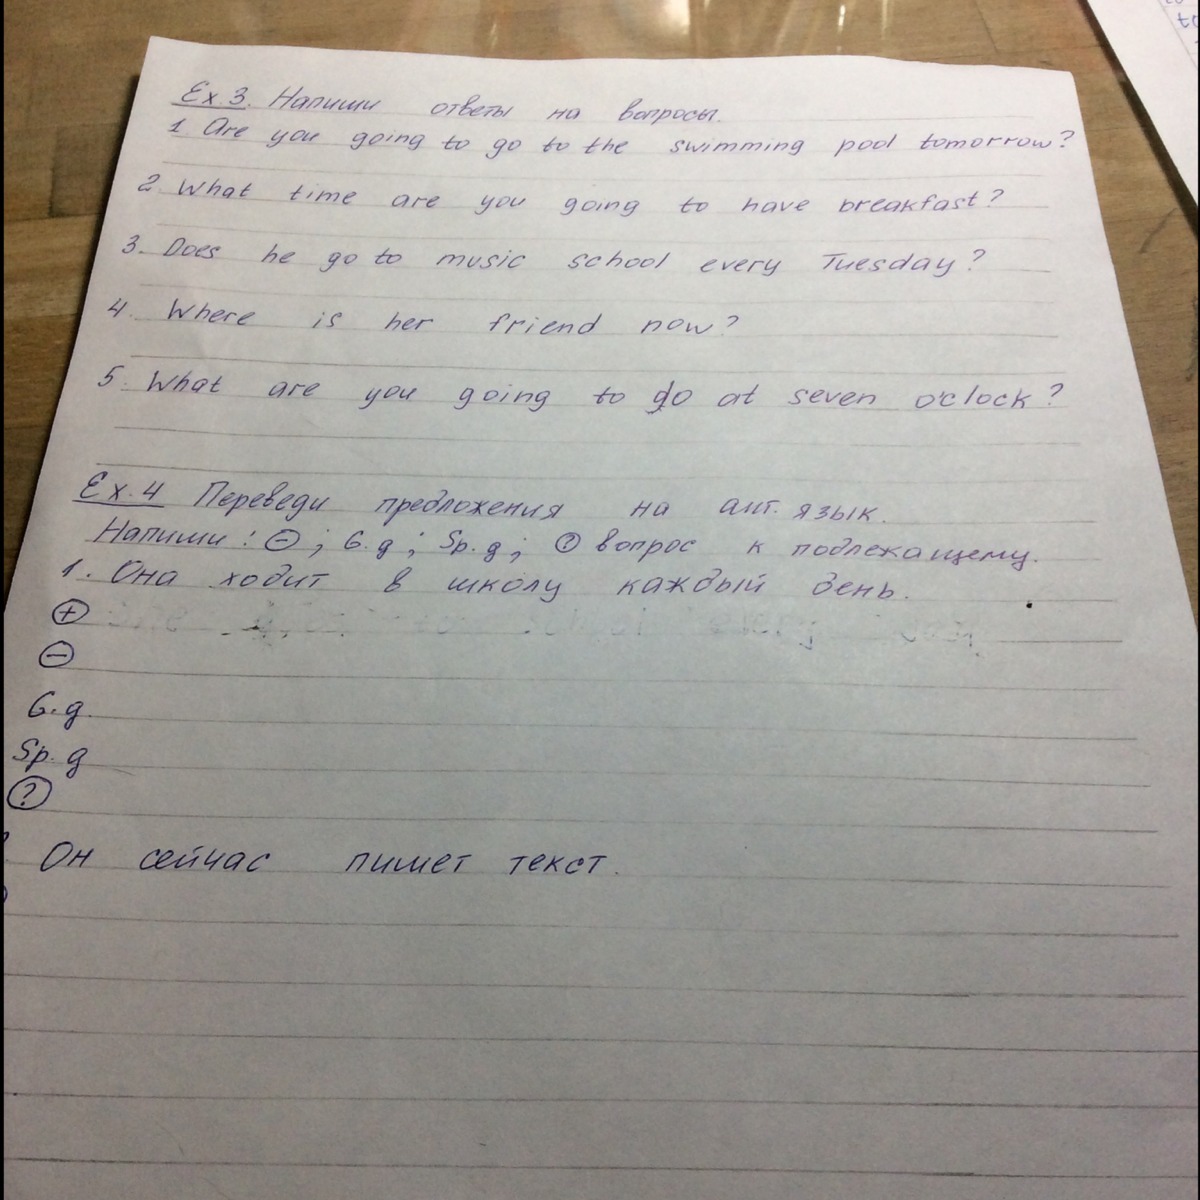 Ex.3. Напиши ответы на вопросы.
1 Are you going to go to the swimming pool tomorrow?
2 What time are you going to have breakfast?
3. Does he go to music school every Tuesday?
4. Where is her friend now?
5. What are you going to do at seven o'clock?
Ex.4 Переведи предложения на анг. язык.
Напиши: ⊖; G.g; Sp.g; ? вопрос к подлежащему.
1. Она ходит в школу каждый день.
⊕
⊖
G.g.
Sp.g
?
Он сейчас пишет текст.